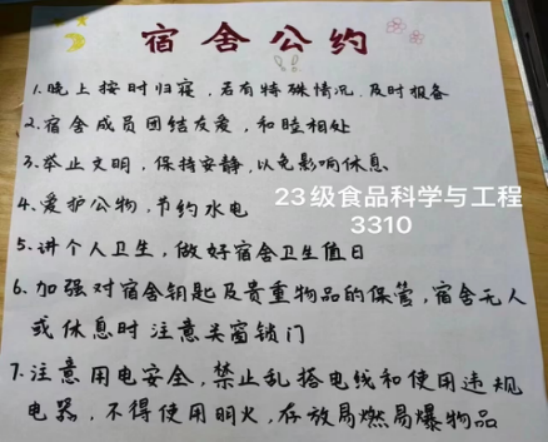 宿舍公约
1.晚上按时归寝，若有特殊情况，及时报备
2.宿舍成员团结友爱，和睦相处
3.举止文明，保持安静，以免影响休息
4.爱护公物，节约水电
23级食品科学与工程
3310
5.讲个人卫生，做好宿舍卫生值日
6.加强对宿舍钥匙及贵重物品的保管，宿舍无人
或休息时注意关窗锁门
7.注意用电安全，禁止乱搭电线和使用违规
电器，不得使用明火，存放易燃易爆物品